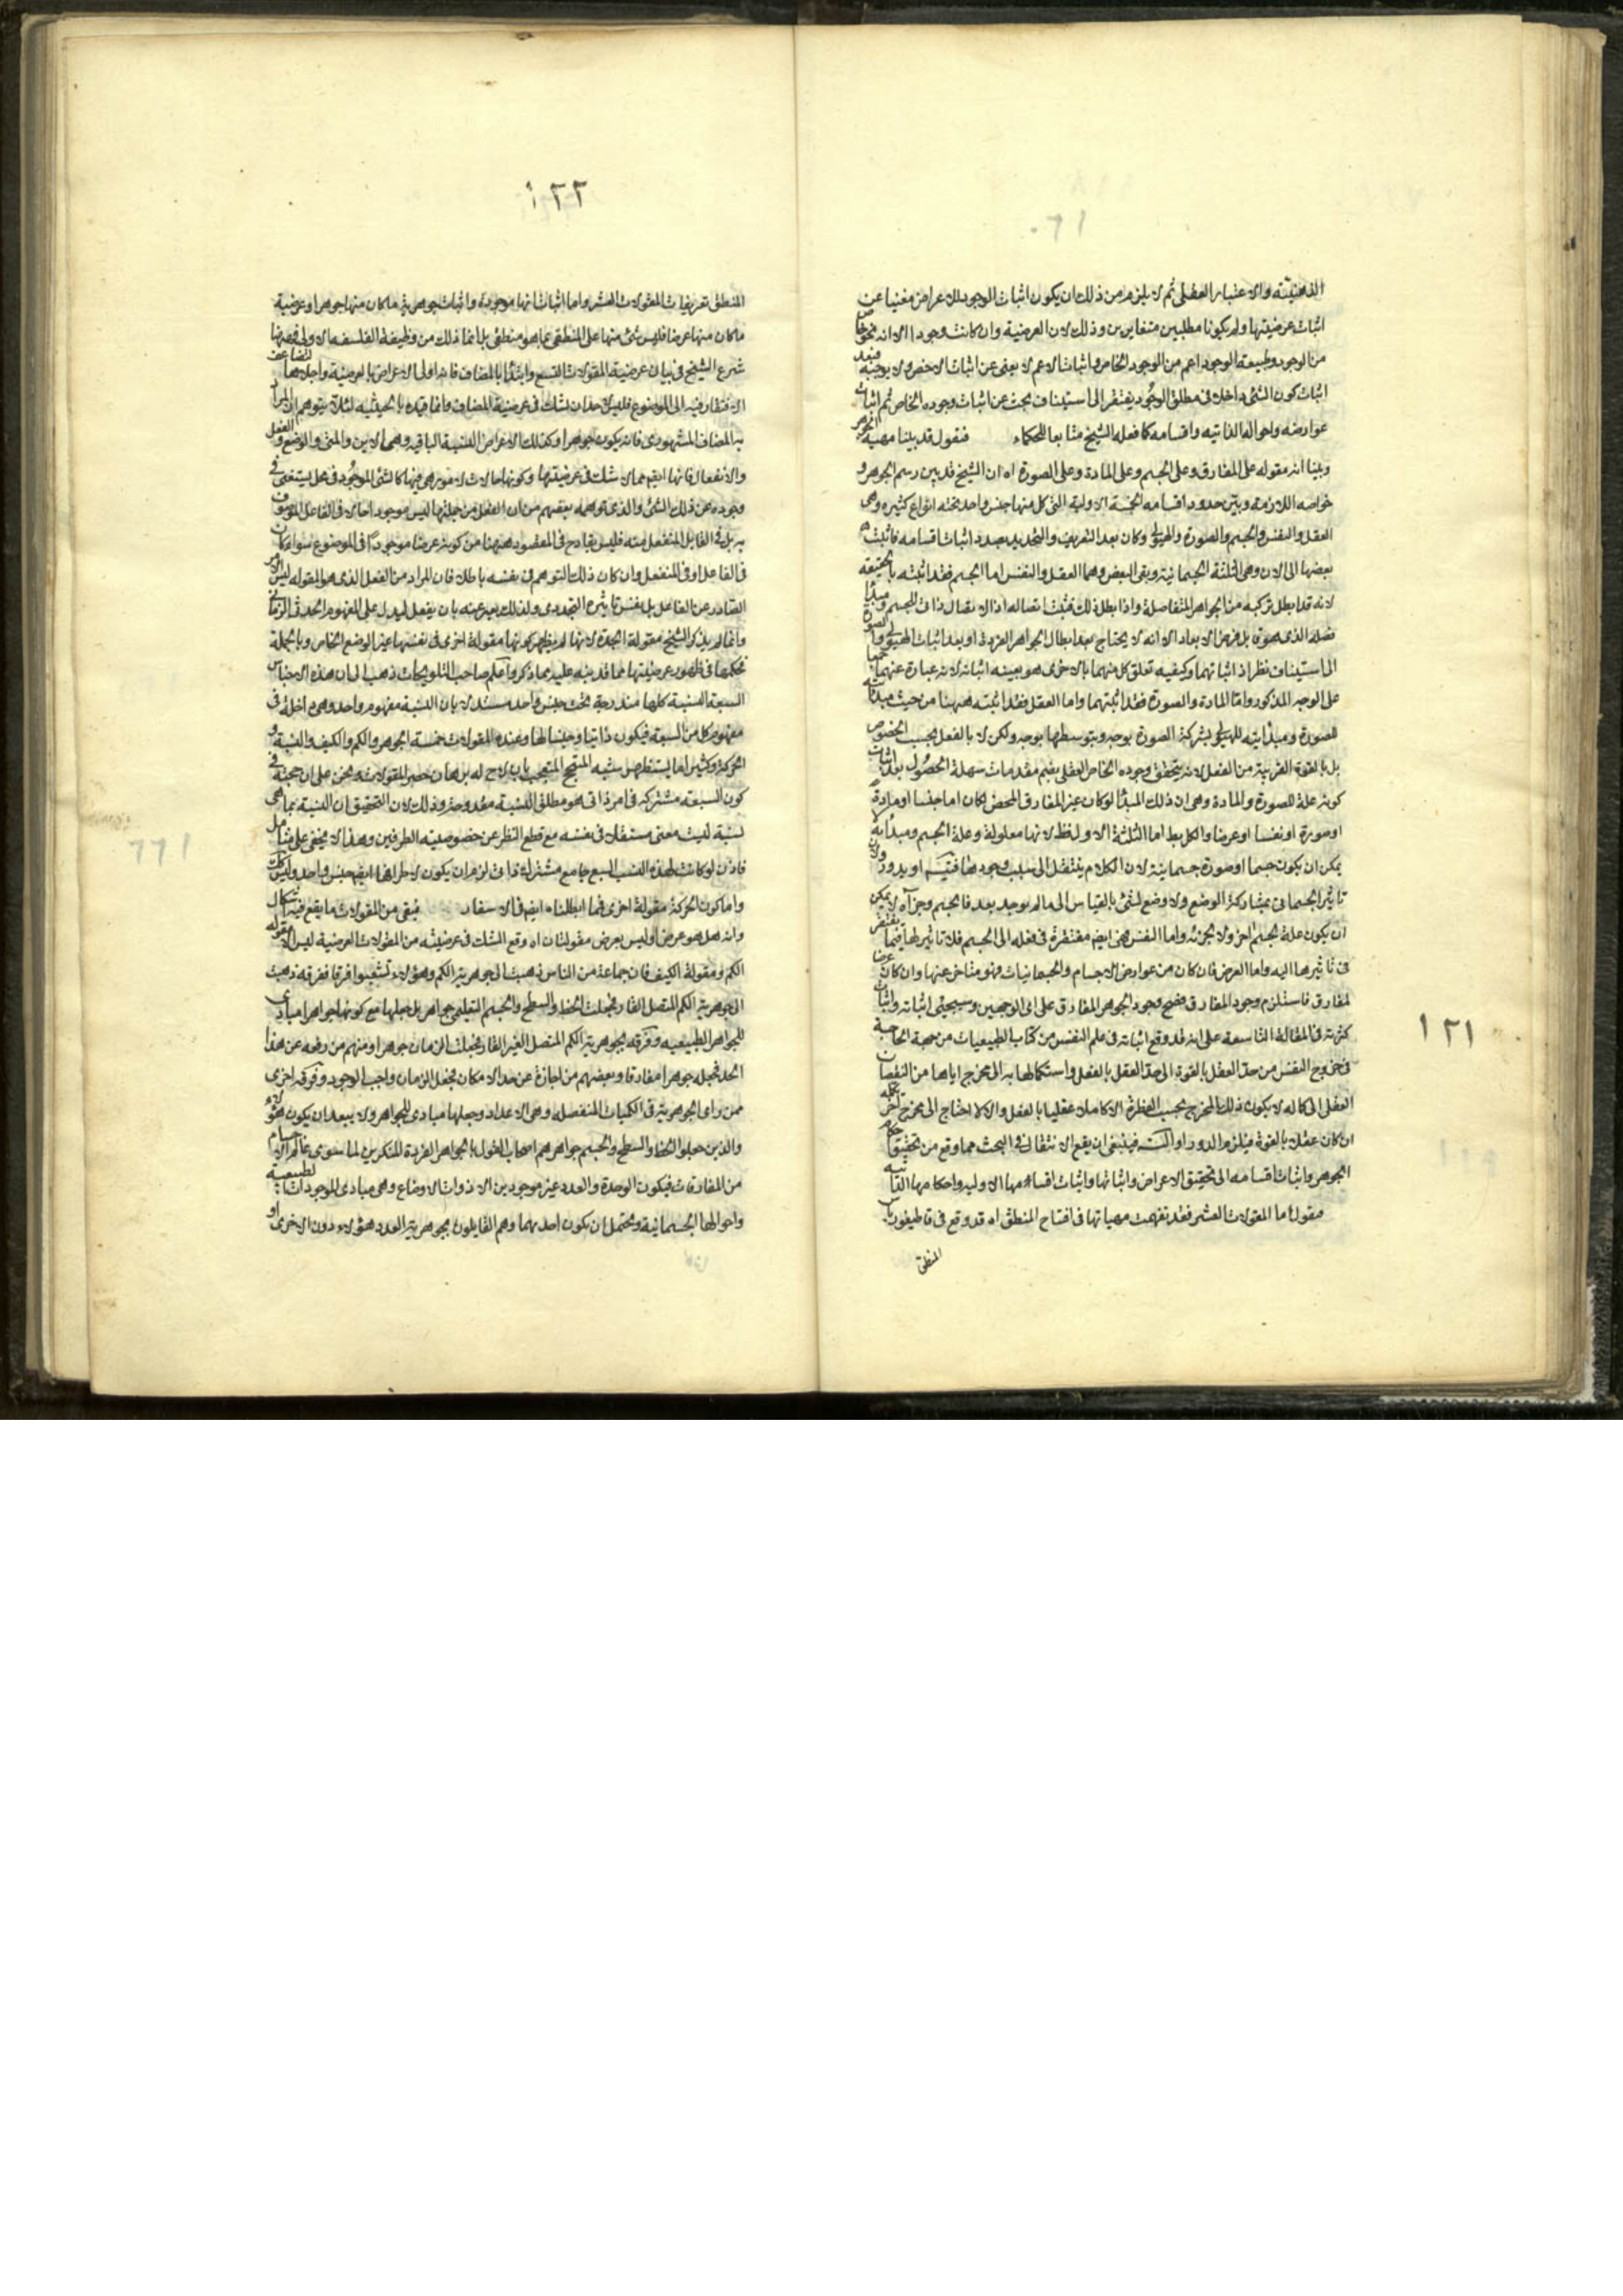 ١٢١
الذهنية والاعتبار العقلى ثم لا يلزم من ذلك ان يكون اثبات الوجود للاعراض مغنيا عن
اثبات عرضيتها ولم يكونا مطلبين متغايرين وذلك لان العرضية وان كانت وجودا الا انه نحو خاص
من الوجود وطبيعة الوجود اعم من الوجود الخاص واثبات الاعم لا يغنى عن اثبات الاخص ولا يوجبه فبعد
اثبات كون الشئ داخلا فى مطلق الوجود يفتقر الى استيناف بحث عن اثبات وجوده الخاص ثم اثبات
عوارضه واحواله الذاتيه واقسامه كما فعله الشيخ متابعا للحكماء فنقول قد بينا مهية الجوهر
وبينا انه مقوله على المفارق وعلى الجسم وعلى المادة وعلى الصورة اه ان الشيخ قد بين رسم الجوهر و
خواصه اللازمة وبين حدود اقسامه الخمسة الاولية التى كل منها جنس واحد تحته انواع كثيره وهى
العقل والنفس والجسم والصورة والهيولى وكان بعد التعريف والتحديد بصدد اثبات اقسامه فاثبت
بعضها الى الان وهى الثلثة الجسمانية وبقى البعض وهما العقل والنفس اما الجسم فقد اثبته بالحقيقه
لانه قد ابطل تركبه من الجواهر المتفاصلة واذا بطل ذلك فثبت اتصاله اذ الاتصال ذاتى للجسم ومبدأ
فصله الذى هو قابل فرض الابعاد الا انه لا يحتاج بعد ابطال الجواهر الفردة او بعد اثبات الهيولى والصورة
الى استيناف نظر اذ اثباتهما وكيفيه تعلق كل منهما بالاخرى هو بعينه اثباته لانه عبارة عنهما جميعا
على الوجه المذكور واما المادة والصورة فقد اثبتهما واما العقل فقد اثبته ههنا من حيث مبدئيته
للصورة ومبدئيته للهيولى بشركة الصورة بوجه وبتوسطها بوجه ولكن لا بالفعل بحسب الخصوص
بل بالقوة القريبة من الفعل لانه يتحقق وجوده الخاص العقلى بضم مقدمات سهلة الحصول بعد اثبات
كونه علة للصورة والمادة وهى ان ذلك المبدأ لو كان غير المفارق المحض لكان اما جسما او مادة
او صورة او نفسا او عرضا والكل بط اما الثلثة الاول فظ لانها معلولة وعلة الجسم ومبدأه لا
يمكن ان يكون جسما او صورة جسمانية لان الكلام ينتقل الى سبب وجودها فيتسم او يدور ولان
تاثير الجسمانى بمشاركة الوضع ولا وضع لشئ بالقياس الى ما لم يوجد بعد فالجسم وجزآه لا يمكن
ان يكون علة لجسم اخر ولا لجزئه واما النفس فهى ايضم مفتقرة فى فعله الى الجسم فلا تاثير لها فيما يفتقر
فى تاثيرها اليه واما العرض فان كان من عوارض الاجسام والجسمانيات فهو متاخر عنها وان كان عرضا
لمفارق فاستلزم وجود المفارق فصح وجود الجوهر المفارق على اى الوجهين وسيجئ اثباته واثبات
كثرته فى المقالة التاسعة على انه قد وقع اثباته فى علم النفس من كتاب الطبيعيات من جهة الحاجة
فى خروج النفس من حد العقل بالقوة الى حد العقل بالفعل واستكمالها به الى مخرج اياها من النقصان
العقلى الى كماله لا يكون ذلك المخرج بحسب الفطرة الا كاملا عقليا بالفعل والا لاحتاج الى مخرج اخر يكمله
ان كان عقلا بالقوة فيلزم الدور او التسم فينبغى ان يقع الانتقال فى البحث مما وقع من تحقيق احكام
الجوهر واثبات اقسامه الى تحقيق الاعراض واثباتها واثبات اقسامها الاوليه واحكامها الذاتيه
فنقول اما المقولات العشر فقد تفهمت مهياتها فى افتتاح المنطق اه قد وقع فى قاطيغورياس
المنطق
١٢٢
المنطق تعريفات المقولات العشر واما اثبات انها موجودة واثبات جوهرية ما كان منها جوهرا وعرضية
ما كان منها عرضا فليس شئ منها على المنطقى بما هو منطقى بل انما ذلك من وظيفة الفلسفة الاولى فههنا
شرع الشيخ فى بيان عرضية المقولات التسع وابتدا بالمضاف فانه اولى الاعراض بالعرضية واجلاها
الافتقار فيه الى الموضوع فليس لاحد ان يشك فى عرضية المضاف وانما قيده بالحيثيه لئلا يتوهم ان المراد
به المضاف المشهورى فانه يكون جوهرا وكذلك الاعراض النسبية الباقيه وهى الاين والمتى والوضع والفعل
والانفعال فانها ايضم مما لا شك فى عرضيتها وكونها حالات لامور هى فيها كالشئ الموجود فى محل يستغنى فى
وجوده عن ذلك الشئ والذى توهمه بعضهم من ان الفعل من جملتها ليس موجودا حالا فى الفاعل الموصوف
به بل فى القابل المنفعل منه فليس بقادح فى المقصود ههنا من كونه عرضا موجودا فى الموضوع سواء كان
فى الفاعل او فى المنفعل وان كان ذلك التوهم فى نفسه باطلا فان المراد من الفعل الذى هو المقوله ليس الاثر
الصادر عن الفاعل بل نفس تاثيره التجددى ولذلك يعبر عنه بان يفعل ليدل على المفهوم الحدثى الزمانى
وانما لم يذكر الشيخ مقولة الجدة لانها لم يظهر كونها مقولة اخرى فى نفسها غير الوضع الخاص وبالجملة
فحكمها فى ظهور عرضيتها مما قد ينبه عليه بما ذكر واعلم ان صاحب التلويحات ذهب الى ان هذه الاجناس
السبعة النسبية كلها مندرجة تحت جنس واحد مستدلا بان النسبة مفهوم واحد وهى داخلة فى
مفهوم كل من السبعة فيكون ذاتيا وجنسا لها وعنده المقولات خمسة الجوهر والكم والكيف والنسبة و
الحركة وكثيرا ما يستظهر ويتبجح المتبجح بان لاح له برهان حصر المقولات ونحن على ان حجته فى
كون السبعة مشتركة فى امر ذاتى هو مطلق النسبة مقدوحة وذلك لان التحقيق ان النسبة بما هى
نسبة ليست معنى مستقلا فى نفسه مع قطع النظر عن خصوصية الطرفين وهذا لا يخفى على متامل
فاذن لو كانت لهذه النسب السبع جامع مشترك ذاتى لزم ان يكون لاطرافها ايضم جنس واحد وليس كذلك
واما كون الحركة مقولة اخرى فمما ابطلناه ايضم فى الاسفار فبقى من المقولات ما يقع فيه اشكال
وانه هل هو عرض او ليس بعرض مقولتان اه وقع الشك فى عرضيته من المقولات العرضية ليس الا مقوله
الكم ومقولة الكيف فان جماعة من الناس ذهبت الى جوهرية الكم وهؤلاء تشعبوا فرقا ففرقه ذهبت
الى جوهرية الكم المتصل القار فجعلت الخط والسطح والجسم التعليمى جواهر بل جعلها مع كونها جواهر مبادى
للجواهر الطبيعيه وفرقه بجوهرية الكم المتصل الغير القار فجعلت الزمان جوهرا ومنهم من رفعه عن هذا
الحد فجعله جوهرا مفارقا وبعضهم من اجازه عن حد الامكان فجعل الزمان واجب الوجود وفرقه اخرى
ممن راى الجوهرية فى الكميات المنفصله وهى الاعداد وجعلها مبادى للجواهر ولا يبعد ان يكون هؤلاء
والذين جعلوا الخط والسطح والجسم جواهر هم اصحاب القول بالجواهر الفردة المنكرين لما سوى عالم الاجسام
من المفارقات فيكون الوحدة والعدد غير موجودين الا ذوات الاوضاع وهى مبادى للموجودات الطبيعية
واحوالها الجسمانية ويحتمل ان يكون احدهما وهم القايلون بجوهرية العدد هؤلاء دون الاخرى او